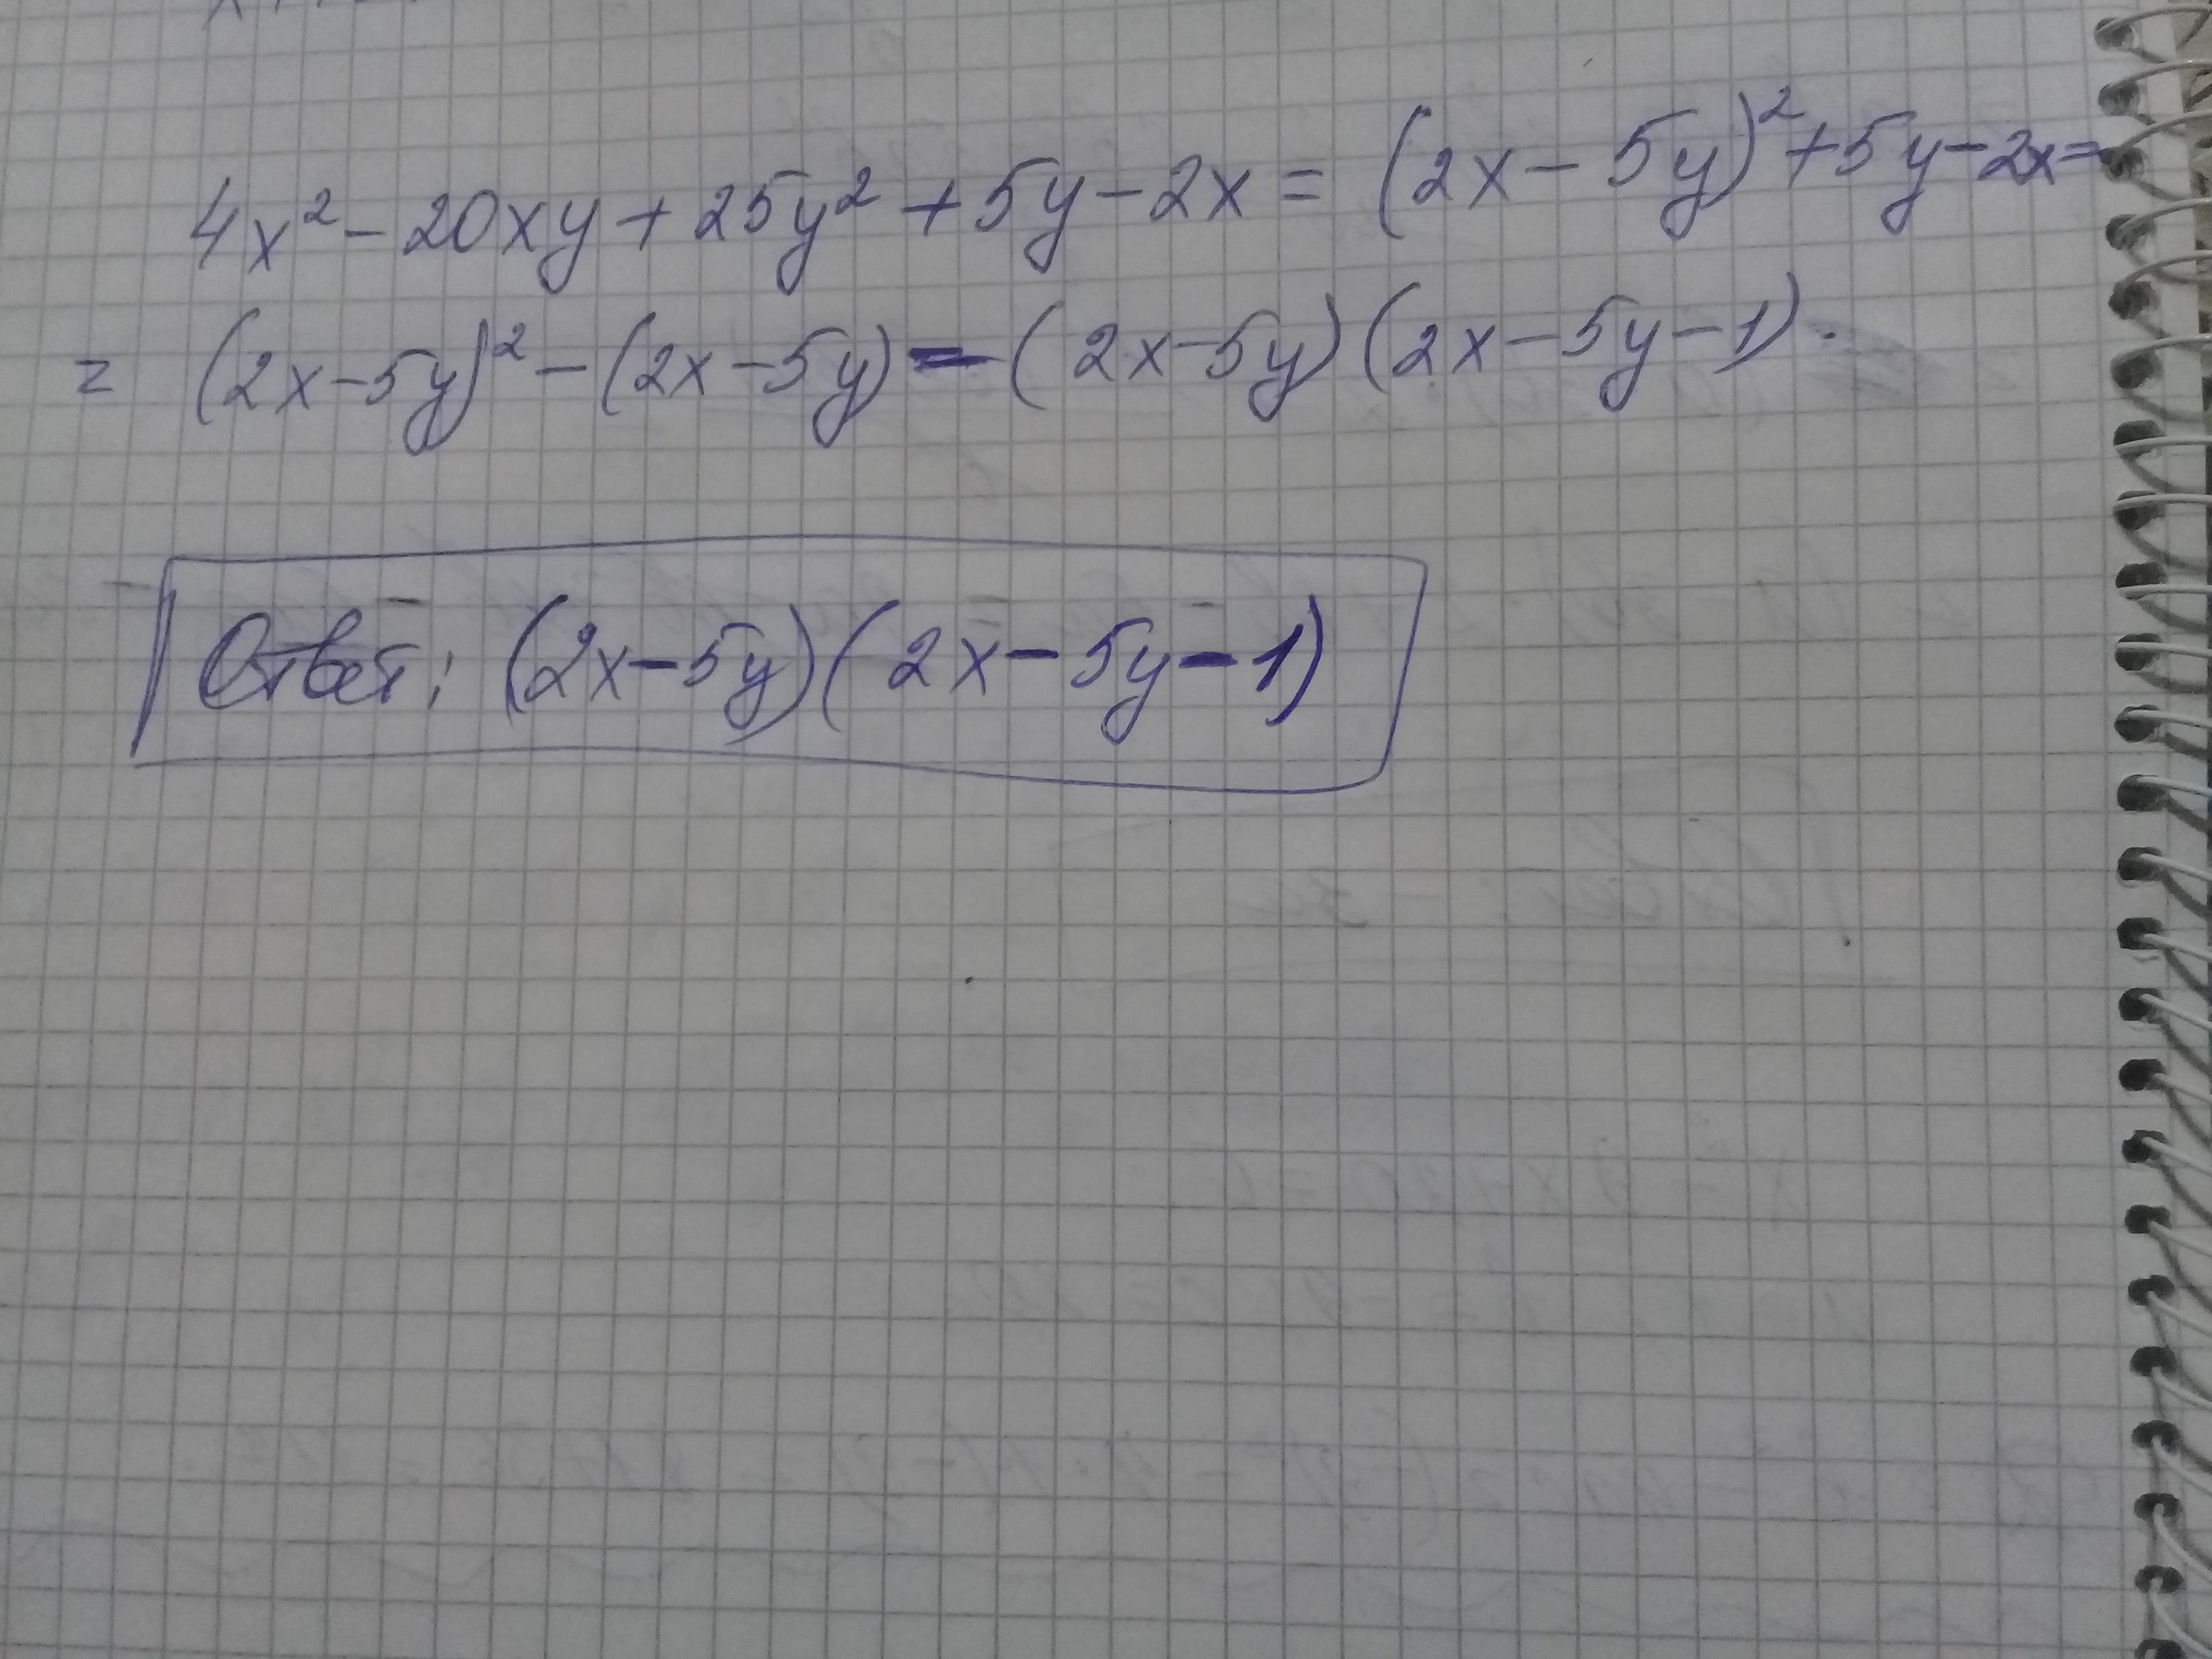 4x² - 20xy + 25y² + 5y - 2x = (2x - 5y)² + 5y - 2x =
= (2x - 5y)² - (2x - 5y) = (2x - 5y)(2x - 5y - 1).
Ответ: (2x - 5y)(2x - 5y - 1)